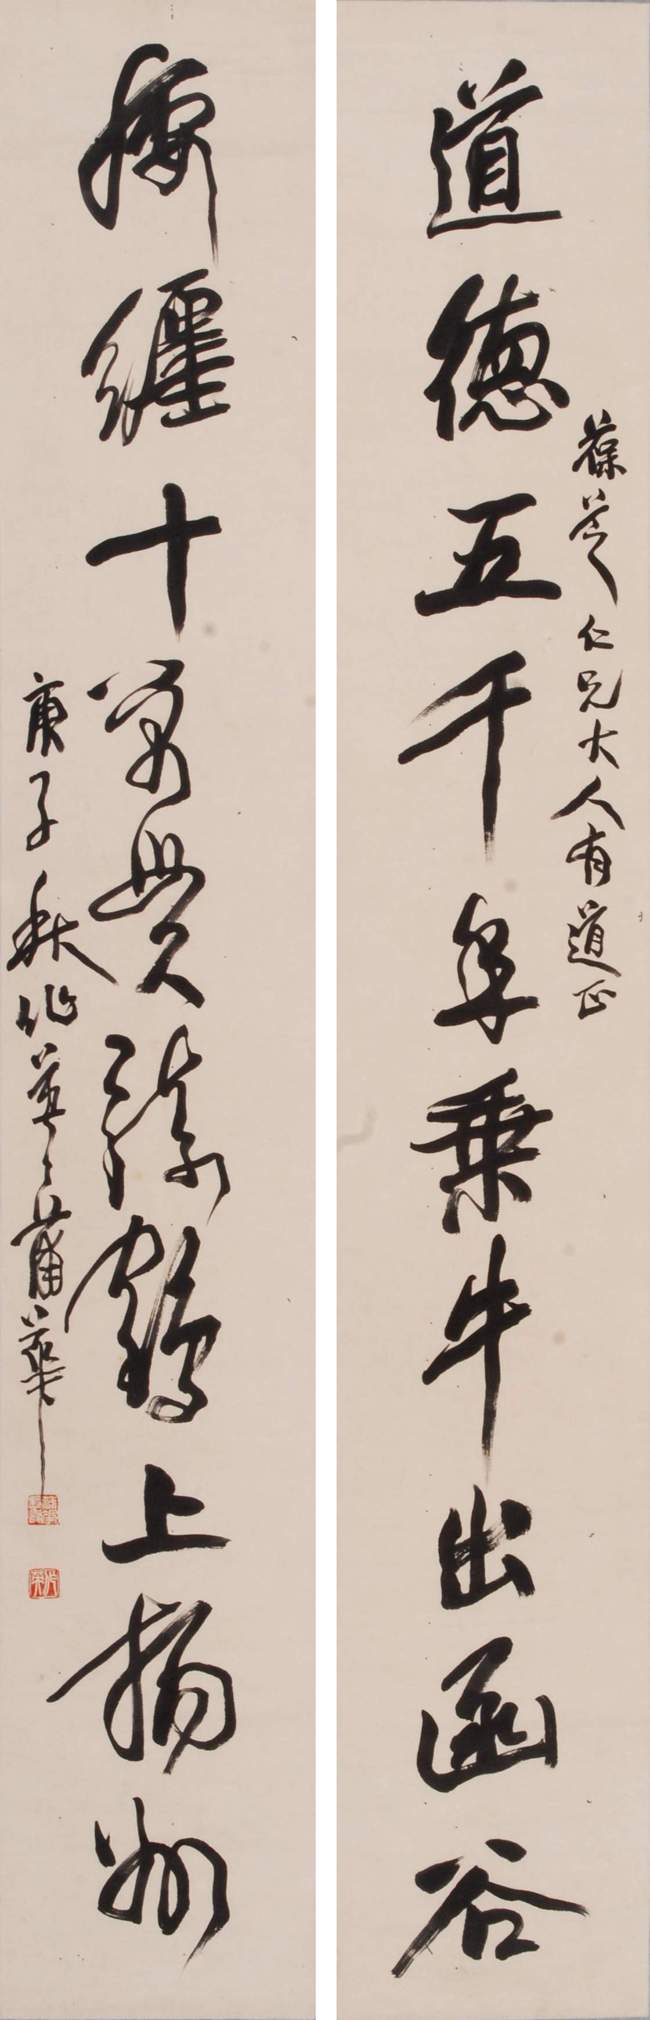 葆仁兄大人有道正
道德五千年乘牛出函谷
腰纏十萬貫騎鶴上揚州
庚子秋作英蒲華